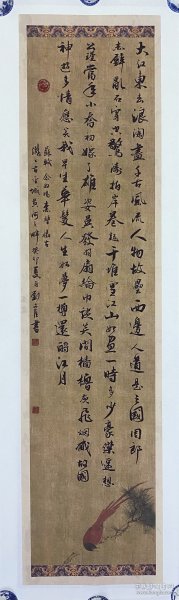 大江東去浪淘盡千古風流人物故壘西邊人道是三國周郎
赤壁亂石穿空驚濤拍岸卷起千堆雪江山如畫一時多少豪傑遙想
公瑾當年小喬初嫁了雄姿英發羽扇綸巾談笑間檣櫓灰飛煙滅故國
神遊多情應笑我早生華髮人生如夢一樽還酹江月
蘇軾念奴嬌赤壁懷古
癸卯夏月劉
書